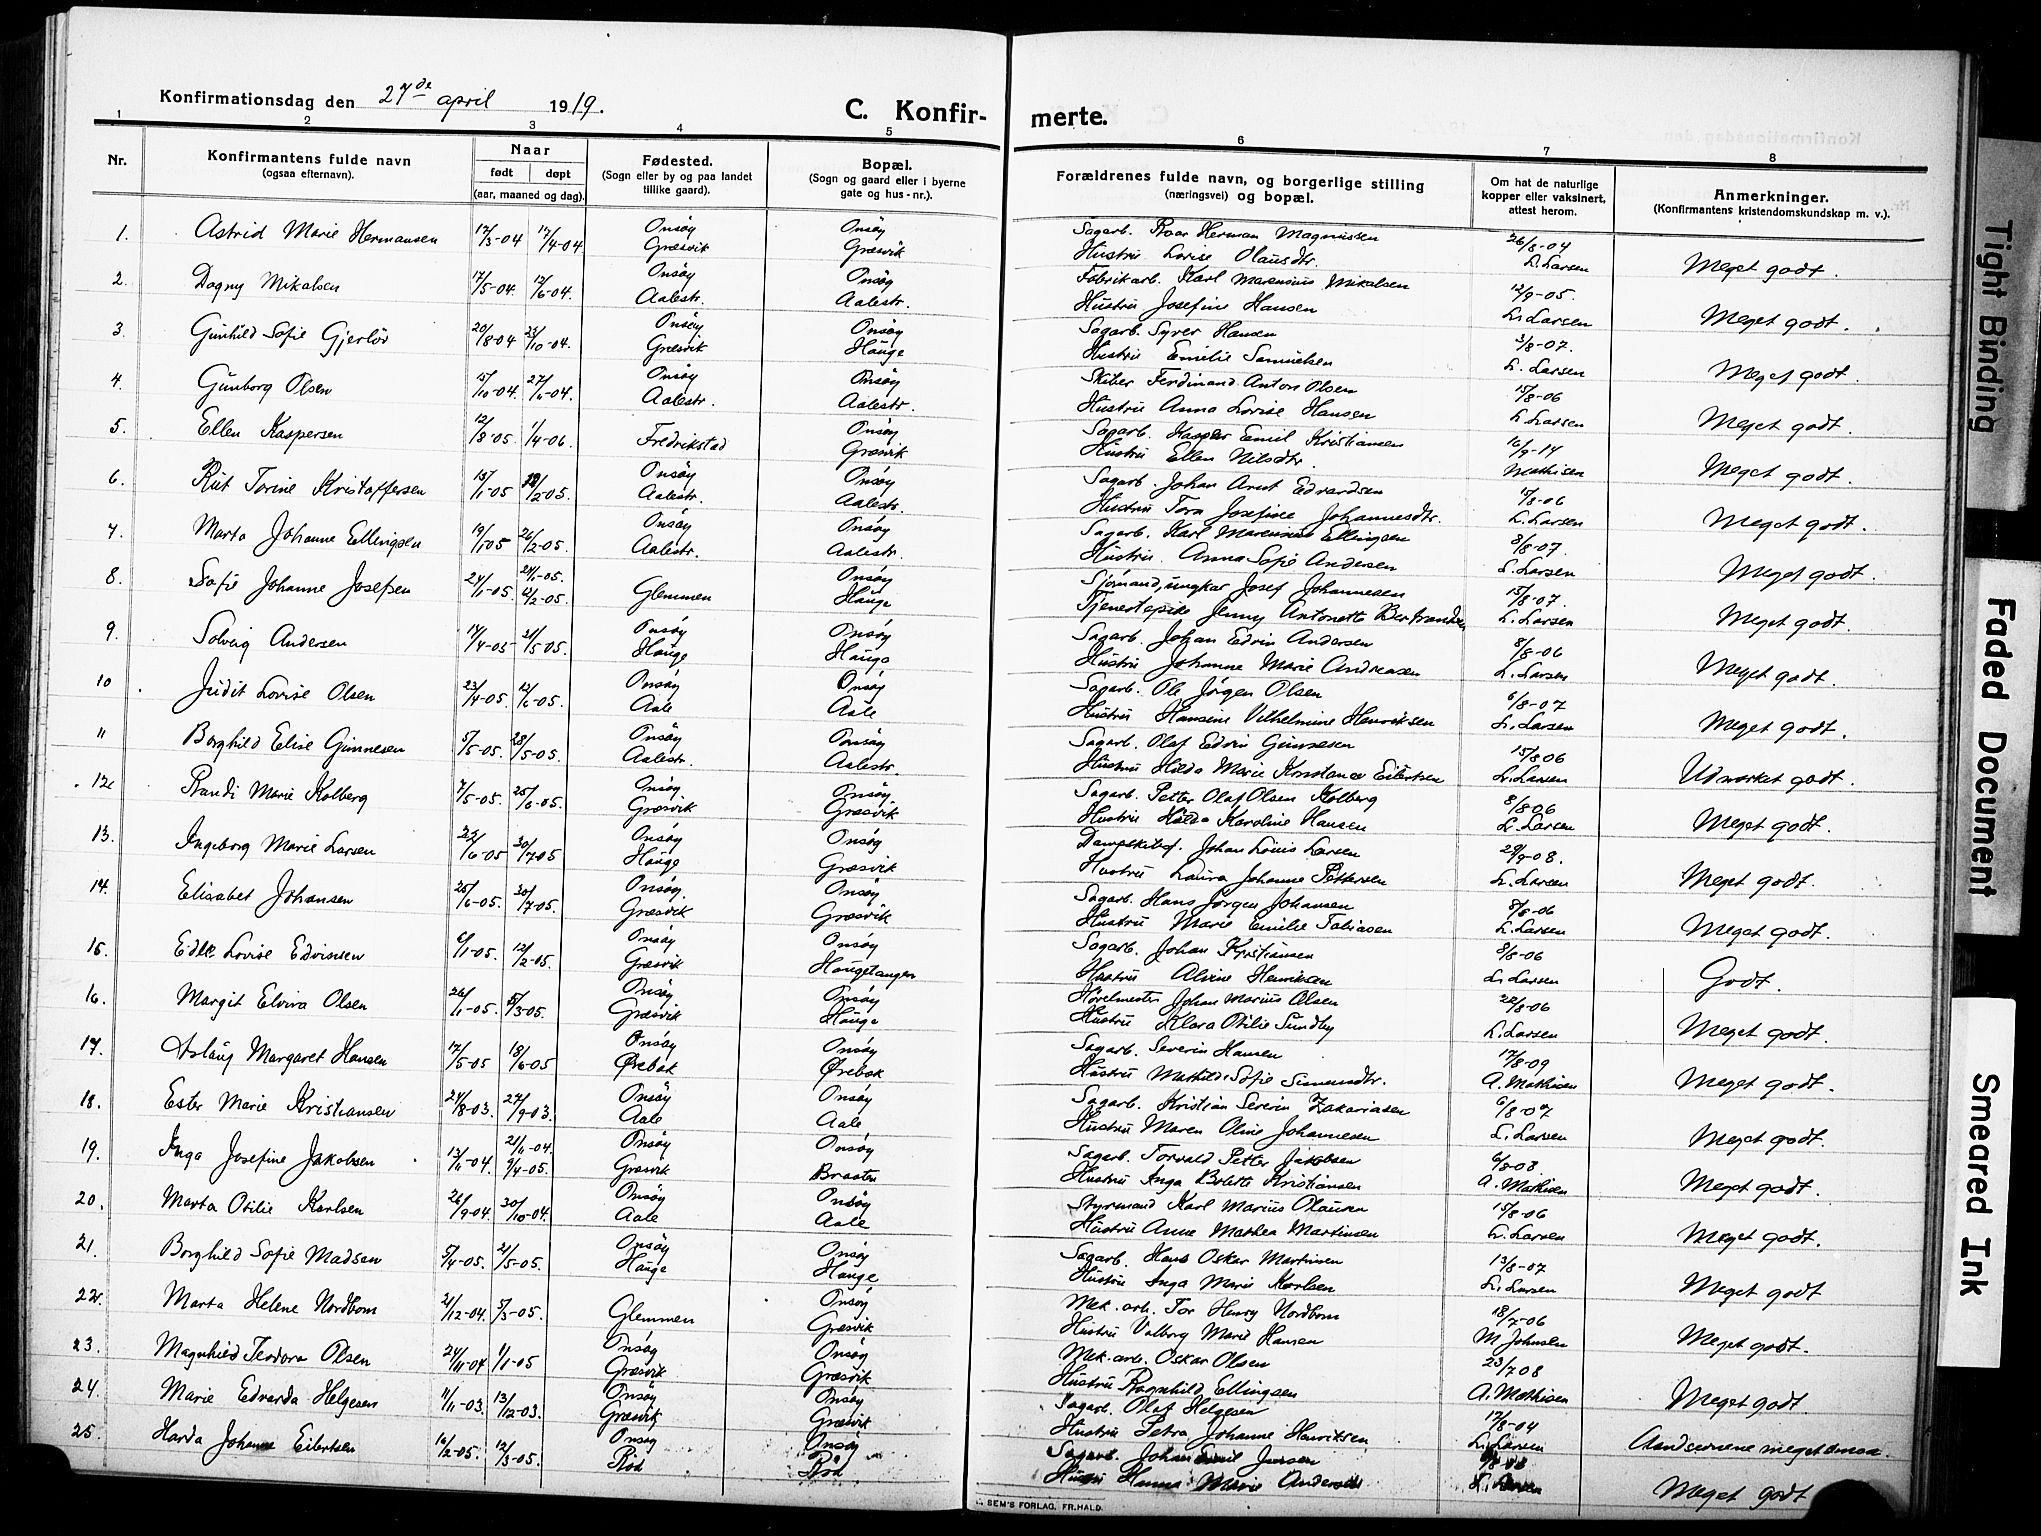 Konfirmationsdag den 27de april 1919.
C. Konfir- merte.
1 2 3 4 5 6 7 8
Nr.
Konfirmantens fulde navn
(ogsaa efternavn).
Naar
født døpt
(aar, maaned og dag).
Fødested.
(Sogn eller by og paa landet
tillike gaard).
Bopæl.
(Sogn og gaard eller i byerne
gate og hus-nr.).
Forældrenes fulde navn, og borgerlige stilling
(næringsvei) og bopæl.
Om hat de naturlige
kopper eller vaksinert,
attest herom.
Anmerkninger.
(Konfirmantens kristendomskundskap m. v.).
1. Astrid Marie Hermansen 17/3-04 17/4-04 Onsøy Græsvik Onsøy Græsvik Sagarb. Roar Herman Magnussen 26/8-04
Hustru Lovise Olausdtr. L. Larsen Meget godt.
2. Dagny Mikalsen 17/5-04. 12/6-04. Onsøy Aalestr. Onsøy Aalestr. Fabrikarb. Karl Marensius Mikalsen 12/9-05.
Hustru Josefine Hansen L. Larsen Meget godt.
3. Gunhild Sofie Gjerløv 20/8-04 23/10-04. Onsøy Græsvik Onsøy Hauge Sagarb. Syver Hansen 3/8-07.
Hustru Emilie Samuelsen L. Larsen Meget godt.
4. Gunborg Olsen 15/10-04 27/11-04. Onsøy Aalestr. Onsøy Aalestr. Skiber Ferdinand Anton Olsen 15/8-06
Hustru Anna Lovise Hansen L. Larsen Meget godt.
5. Ellen Kaspersen 12/8-05. 1/4-06. Fredrikstad Onsøy Græsvik Sagarb. Kasper Emil Kristiansen 16/9-14
Hustru Ellen Nilsdtr. Mathisen Meget godt.
6. Rut Torine Kristoffersen 15/1-05 /2-05. Onsøy Aalestr. Onsøy Aalestr. Sagarb. Johan Arnt Edvardsen 17/8-06
Hustru Tora Josefine Johannesdtr. L. Larsen Meget godt.
7. Marta Johanne Ellingsen 19/1 05 26/2-05. Onsøy Aalestr. Onsøy Aalestr. Sagarb. Karl Marensius Ellingsen 8/8-07.
Hustru Anna Sofie Andersen L. Larsen Meget godt.
8. Sofie Johanne Josefsen 24/1-05. 24/1-05. 12/2-05. Glemmen Onsøy Hauge Sjömand, ungkar Josef Johannesen 15/8-07.
Tjenestepike Jenny Antonette Bertrandsen L. Larsen Meget godt.
9. Solveig Andersen 17/4-05 21/5-05. Onsøy Hauge Onsøy Hauge Sagarb. Johan Edvin Andersen 8/8-06
Hustru Johanne Marie Andreasen L. Larsen Meget godt.
10. Judit Lovise Olsen 23/4-05. 12/6-05. Onsøy Aale Onsøy Aale Sagarb. Ole Jörgen Olsen 6/8-07
Hustru Hansine Vilhelmine Henriksen L. Larsen Meget godt.
11 Borghild Elise Gunnesen 5/5-05. 28/5-05. Onsøy Aalestr. Onsøy Aalestr. Sagarb. Olaf Edvin Gunnesen 15/8 06
Hustru Hilda Marie Konstance Eilertsen L. Larsen Udmærket godt.
12. Randi Marie Kolberg 7/5-05. 25/6-05. Onsøy Græsvik Onsøy Græsvik Sagarb. Petter Olaf Olsen Kolberg 8/8 06
Hustru Hilda Karoline Hansen L. Larsen Meget godt.
13. Ingeborg Marie Larsen 22/6-05 30/7 05 Onsøy Hauge Onsøy Græsvik Johan Louis Larsen 29/9-08.
Hustru Laura Johanne Pettersen L. Larsen Meget godt.
14. Elisabet Johansen 25/6-05. 30/7-05. Onsøy Græsvik Onsøy Græsvik Sagarb. Hans Jörgen Johansen 8/8-06
Hustru Marie Emilie Tobiasen L. Larsen Meget godt.
15. Lovise Edvinsen 6/1-05. 12/2-05. Onsøy Græsvik Onsøy Haugetangen Sagarb. Johan Kristiansen 8/8-06
Hustru Alvine Henriksen L. Larsen Godt.
16. Margit Elvira Olsen 26/1-05. 5/3-05. Onsøy Græsvik Onsøy Hauge Høvelmester Johan Marius Olsen 22/8-06
Hustru Klara Otilie Sundby L. Larsen Meget godt.
17. Aslaug Margaret Hansen 17/5-05 18/6-05 Onsøy Ørebæk Onsøy Ørebæk Sagarb. Severin Hansen 17/8-09
Hustru Mathilde Sofie Simensdtr. A. Mathisen Meget godt.
18. Ester Marie Kristiansen 24/8-03. 27/9-03. Onsøy Aale Onsøy Aale Sagarb. Kristian Severin Zakariasen 6/8-07
Hustru Maren Oline Johannesen L. Larsen Meget godt.
19. Inga Josefine Jakobsen 13/11-04 21/11-04. 2/4-05. Onsøy Græsvik Onsøy Braaten Sagarb. Torvald Petter Jakobsen 6/8-08.
Hustru Inga Bolette Kristiansen A. Mathisen Meget godt.
20. Marta Otilie Karlsen 26/9-04. 30/10-04. Onsøy Aale Onsøy Aale Styrmand Karl Marius Olausen 15/8-06
Hustru Anne Mathea Martinsen L. Larsen Meget godt.
21. Borghild Sofie Madsen 5/4-05. 2/5-05. Onsøy Hauge Onsøy Hauge Sagarb. Hans Oskar Martinsen 13/8-07
Hustru Inga Marie Karlsen L. Larsen Meget godt
22. Marta Helene Nordbom 21/12-04. 5/3-05. Glemmen Onsøy Græsvik Mek. arb. Tor Henry Nordbom 18/7-06
Hustru Valborg Marie Hansen M Johnsen Meget godt.
23. Magnhild Teodora Olsen 24/11-04 1/1-05 Onsøy Græsvik Onsøy Græsvik Mek. arb. Oskar Olsen 23/7 08
Hustru Ragnhild Ellingsen A. Mathisen Meget godt.
24. Marie Edvarda Helgesen 11/11-03. 13/12-03. Onsøy Græsvik Onsøy Græsvik Sagarb. Olaf Helgesen 17/8-04
Hustru Petra Johanne Henriksen L. Larsen Aandsevnene meget smaa.
25. Harda Johanne Eilertsen 16/2-05. 12/3-05. Onsøy Rød Onsøy Rød Sagarb. Johan Emil Jensen
Hustru Hanna Marie Andersen L. Larsen Meget godt
SEM'S FORLAG, FR.HALD.
Tight Binding
Faded Document
Smeared Ink